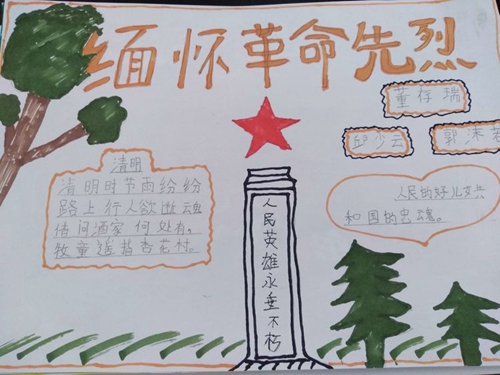 缅怀革命先烈
董存瑞
邱少云
郭沫若
清明
清明时节雨纷纷
路上行人欲断魂
借问酒家何处有。
牧童遥指杏花村。
人民英雄永垂不朽
人民的好儿女兵
和国的忠魂。